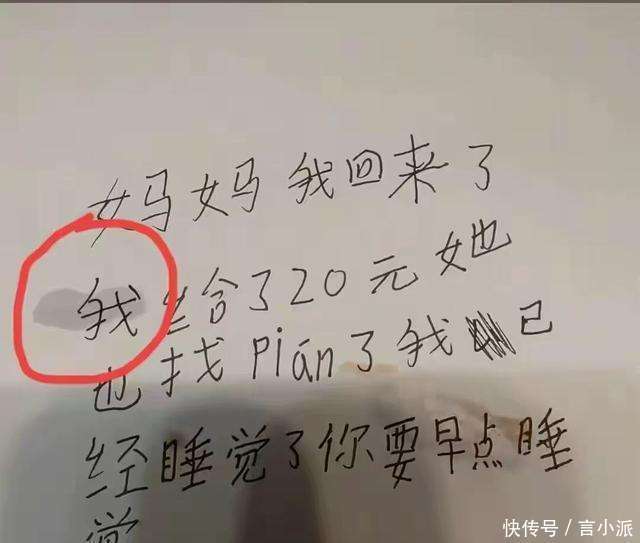 妈妈我回来了
我给了20元她
也找pián了我 已
经睡觉了你要早点睡
觉
快传号／言小派